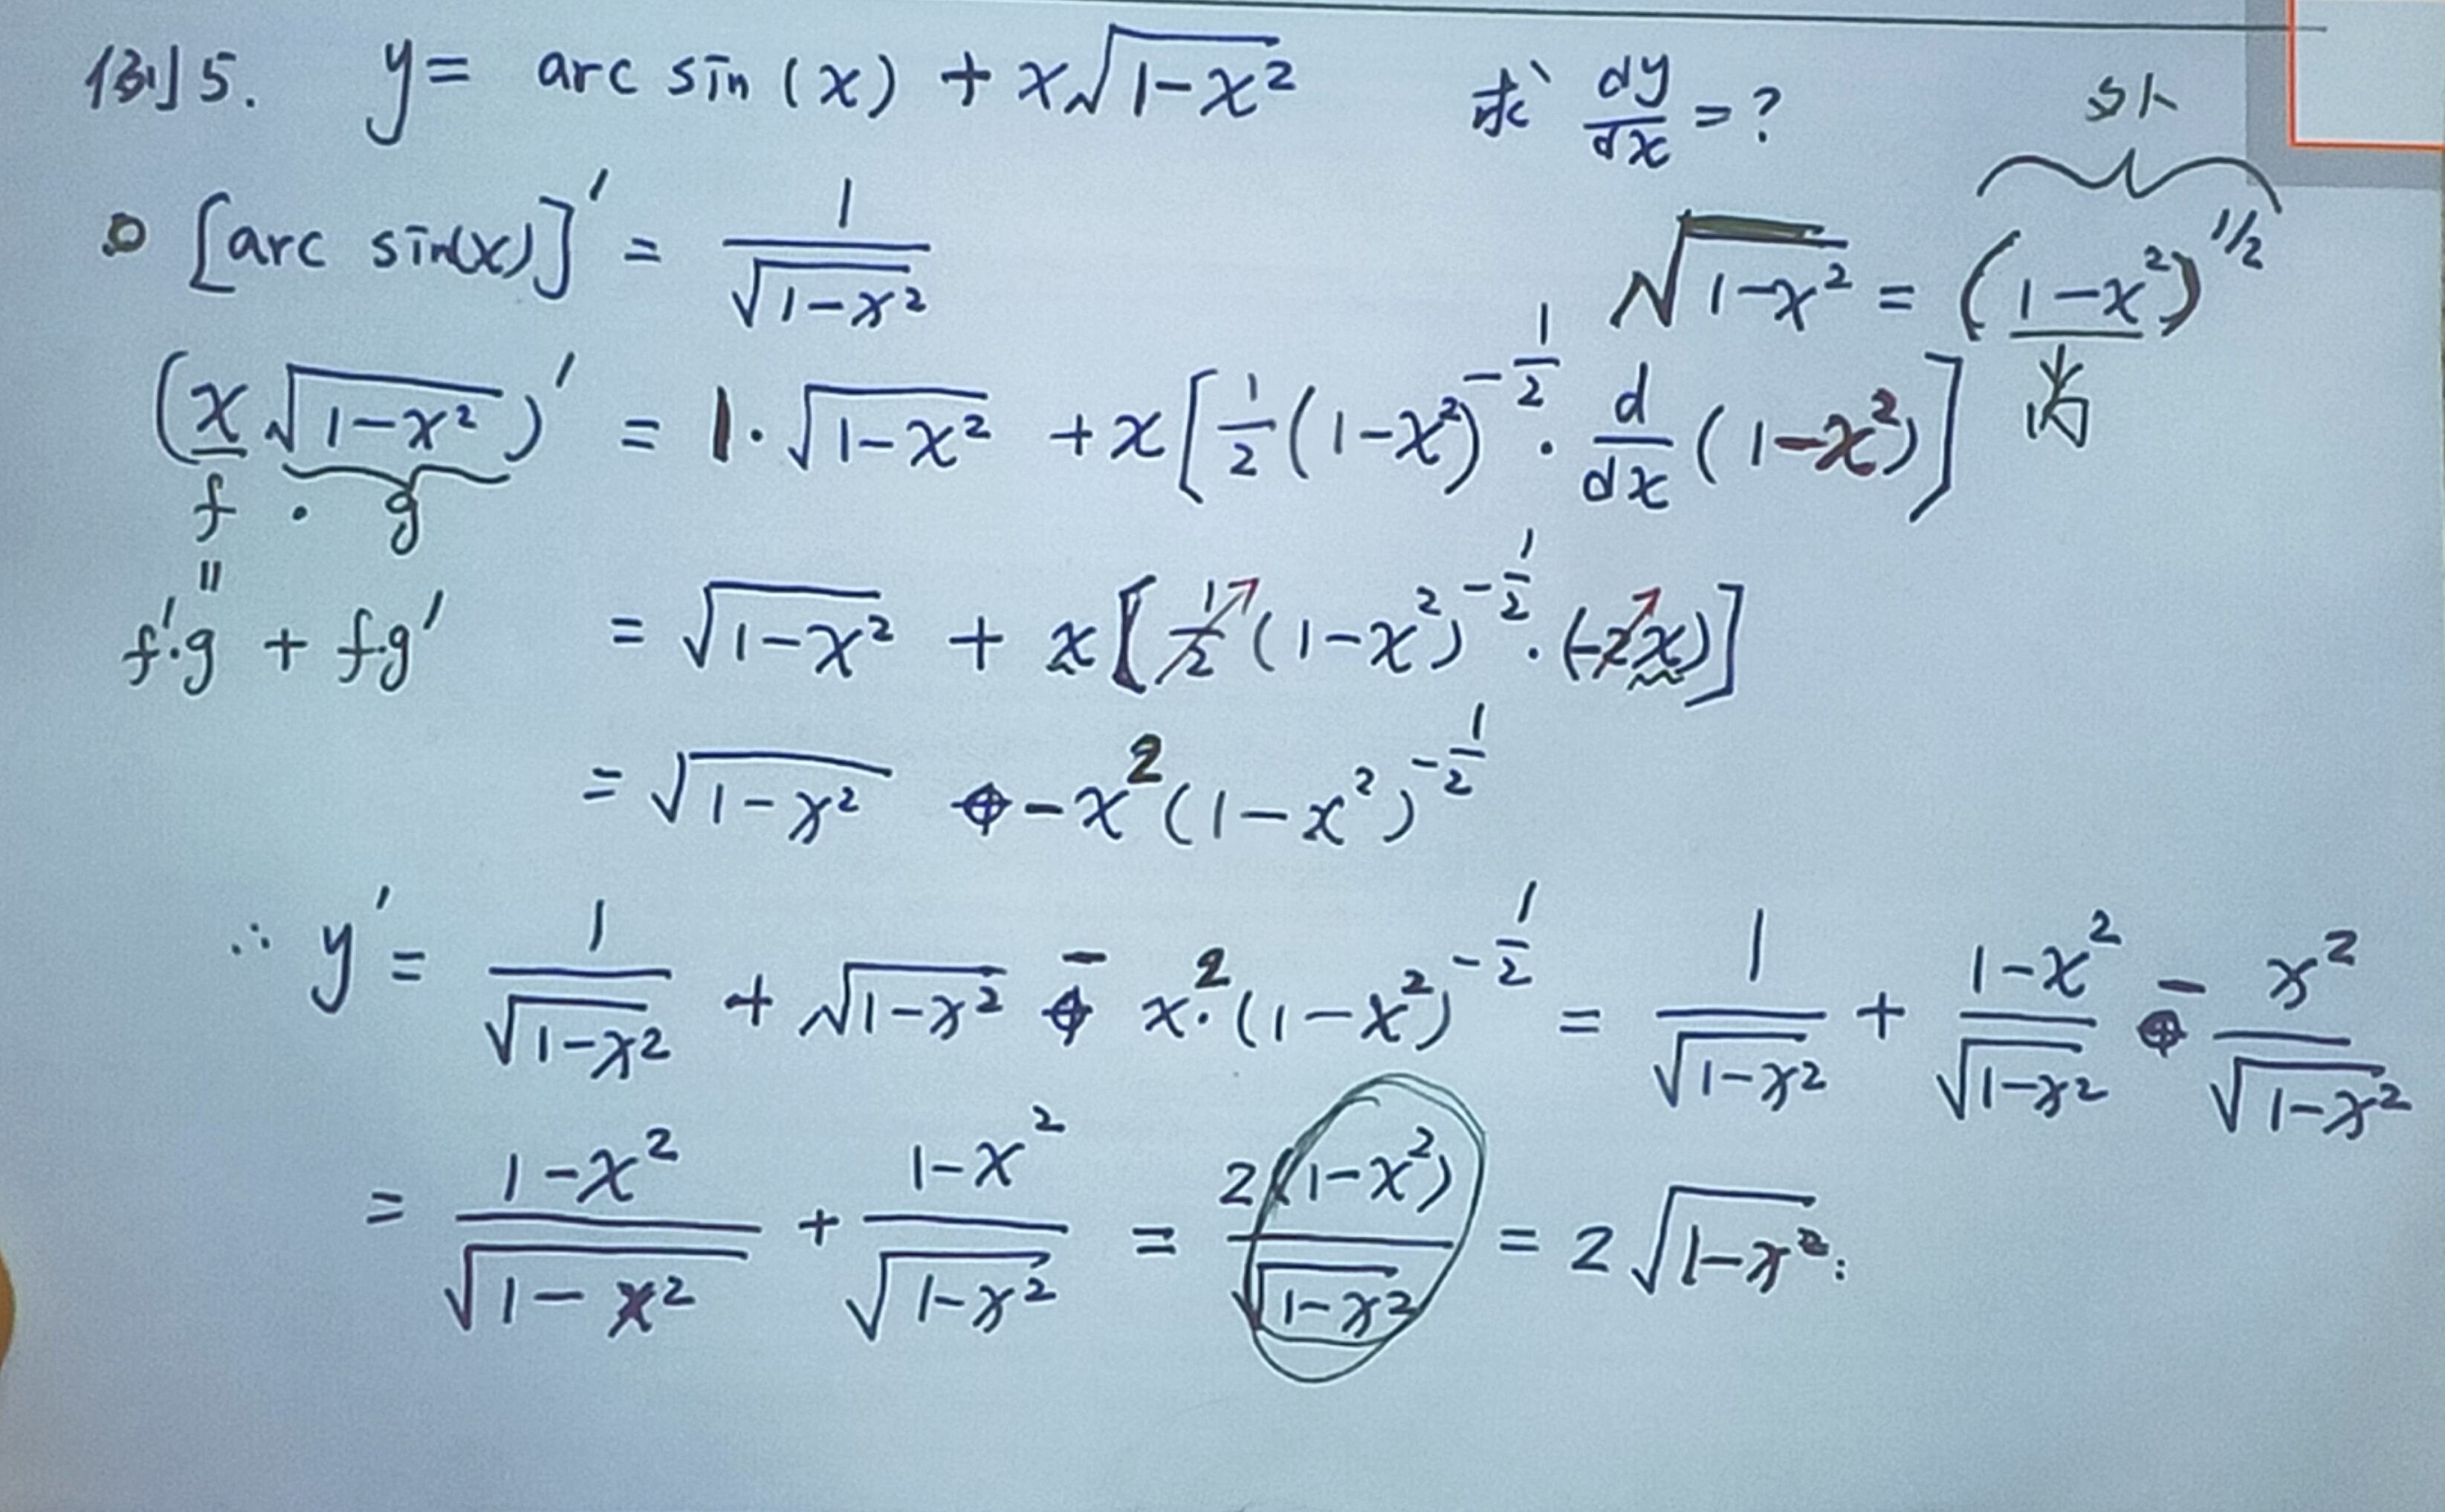 例5. y = arc sin (x) + x√(1-x²) 求 dy/dx = ?
[arc sin(x)]' = 1/√(1-x²)
外
√(1-x²) = (1-x²)^(1/2)
内
(x√(1-x²))' = 1·√(1-x²) + x[1/2(1-x²)^(-1/2) · d/dx(1-x²)]
f · g
=
f'·g + f·g'
= √(1-x²) + x[1/2(1-x²)^(-1/2) · (-2x)]
= √(1-x²) - x²(1-x²)^(-1/2)
∴ y' = 1/√(1-x²) + √(1-x²) - x²·(1-x²)^(-1/2) = 1/√(1-x²) + (1-x²)/√(1-x²) - x²/√(1-x²)
= (1-x²)/√(1-x²) + (1-x²)/√(1-x²) = 2(1-x²)/√(1-x²) = 2√(1-x²) :